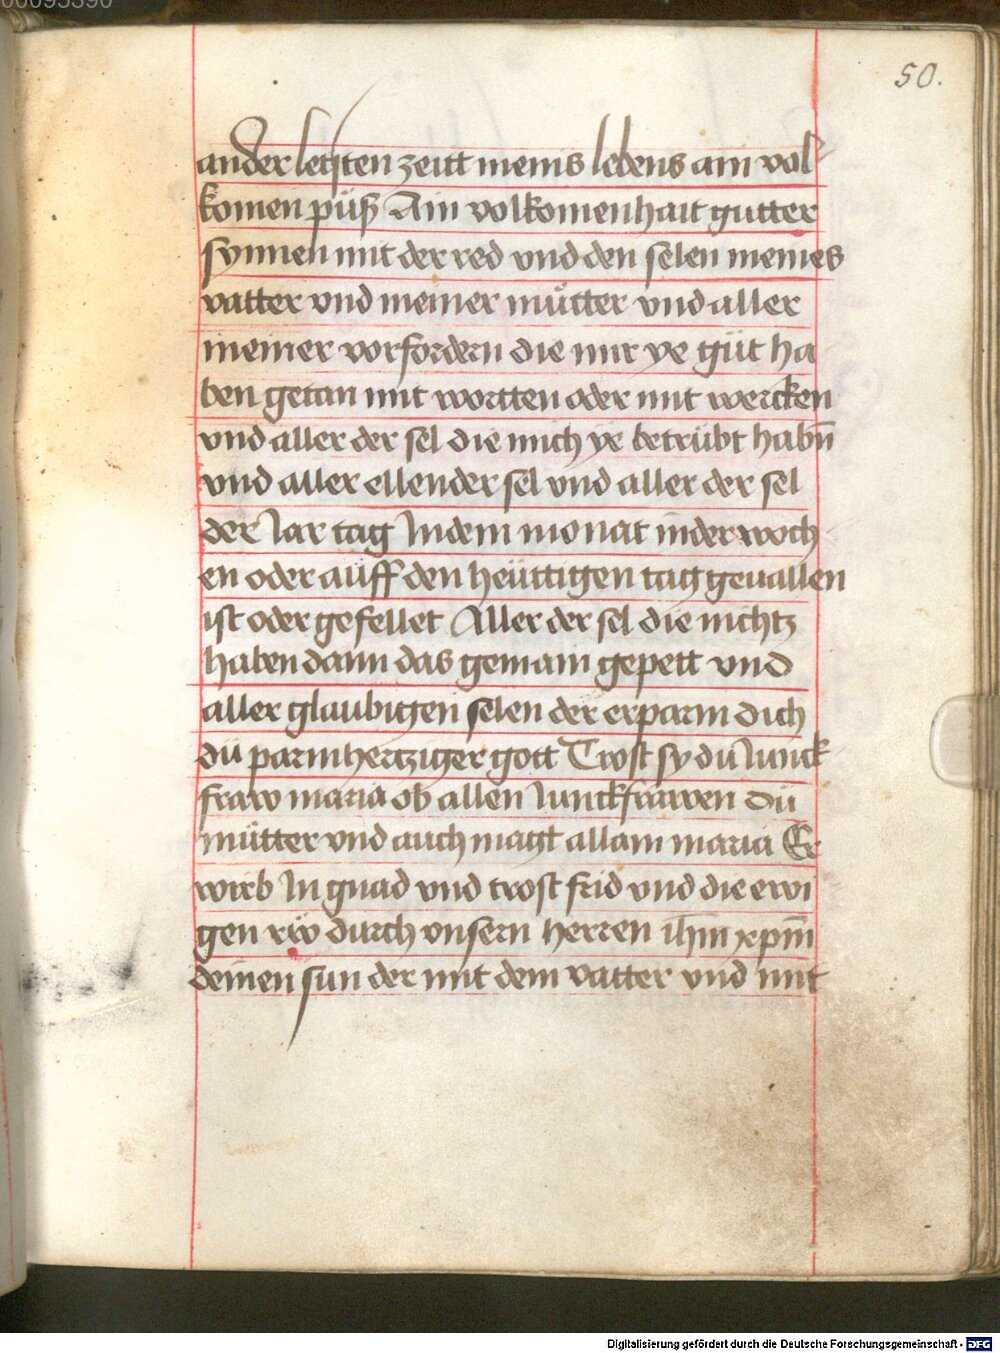 00095390
50.
ander letsten zeitt meins lebens ain vol
komen püß Ain volkomenhait gutter
synnen mit der red vnd den selen meines
vatter vnd meiner mütter vnd aller
meiner vorfordern die mir ye güt ha
ben getan mit wortten oder mit wercken
vnd aller der sel die mich ye betrübt habn̄
vnd aller ellender sel vnd aller der sel
der Jar tag Jndem monat inder woch
en oder auff den heüttigen tag geuallen
ist oder gefellet Aller der sel die nichtz
haben dann das gemain gepett vnd
aller glaubigen selen der erparm dich
dü parmhertziger gott Trost sy dü Junck
fraw maria ob allen Junckfrawen Dü
mütter vnd auch magt allain maria Er
wirb Jn gnad vnd trost frid vnd die ewi
gen rw durch vnsern herren ihm̄ xpm̄
deinen sun der mit dem vatter vnd mit
Digitalisierung gefördert durch die Deutsche Forschungsgemeinschaft - DFG